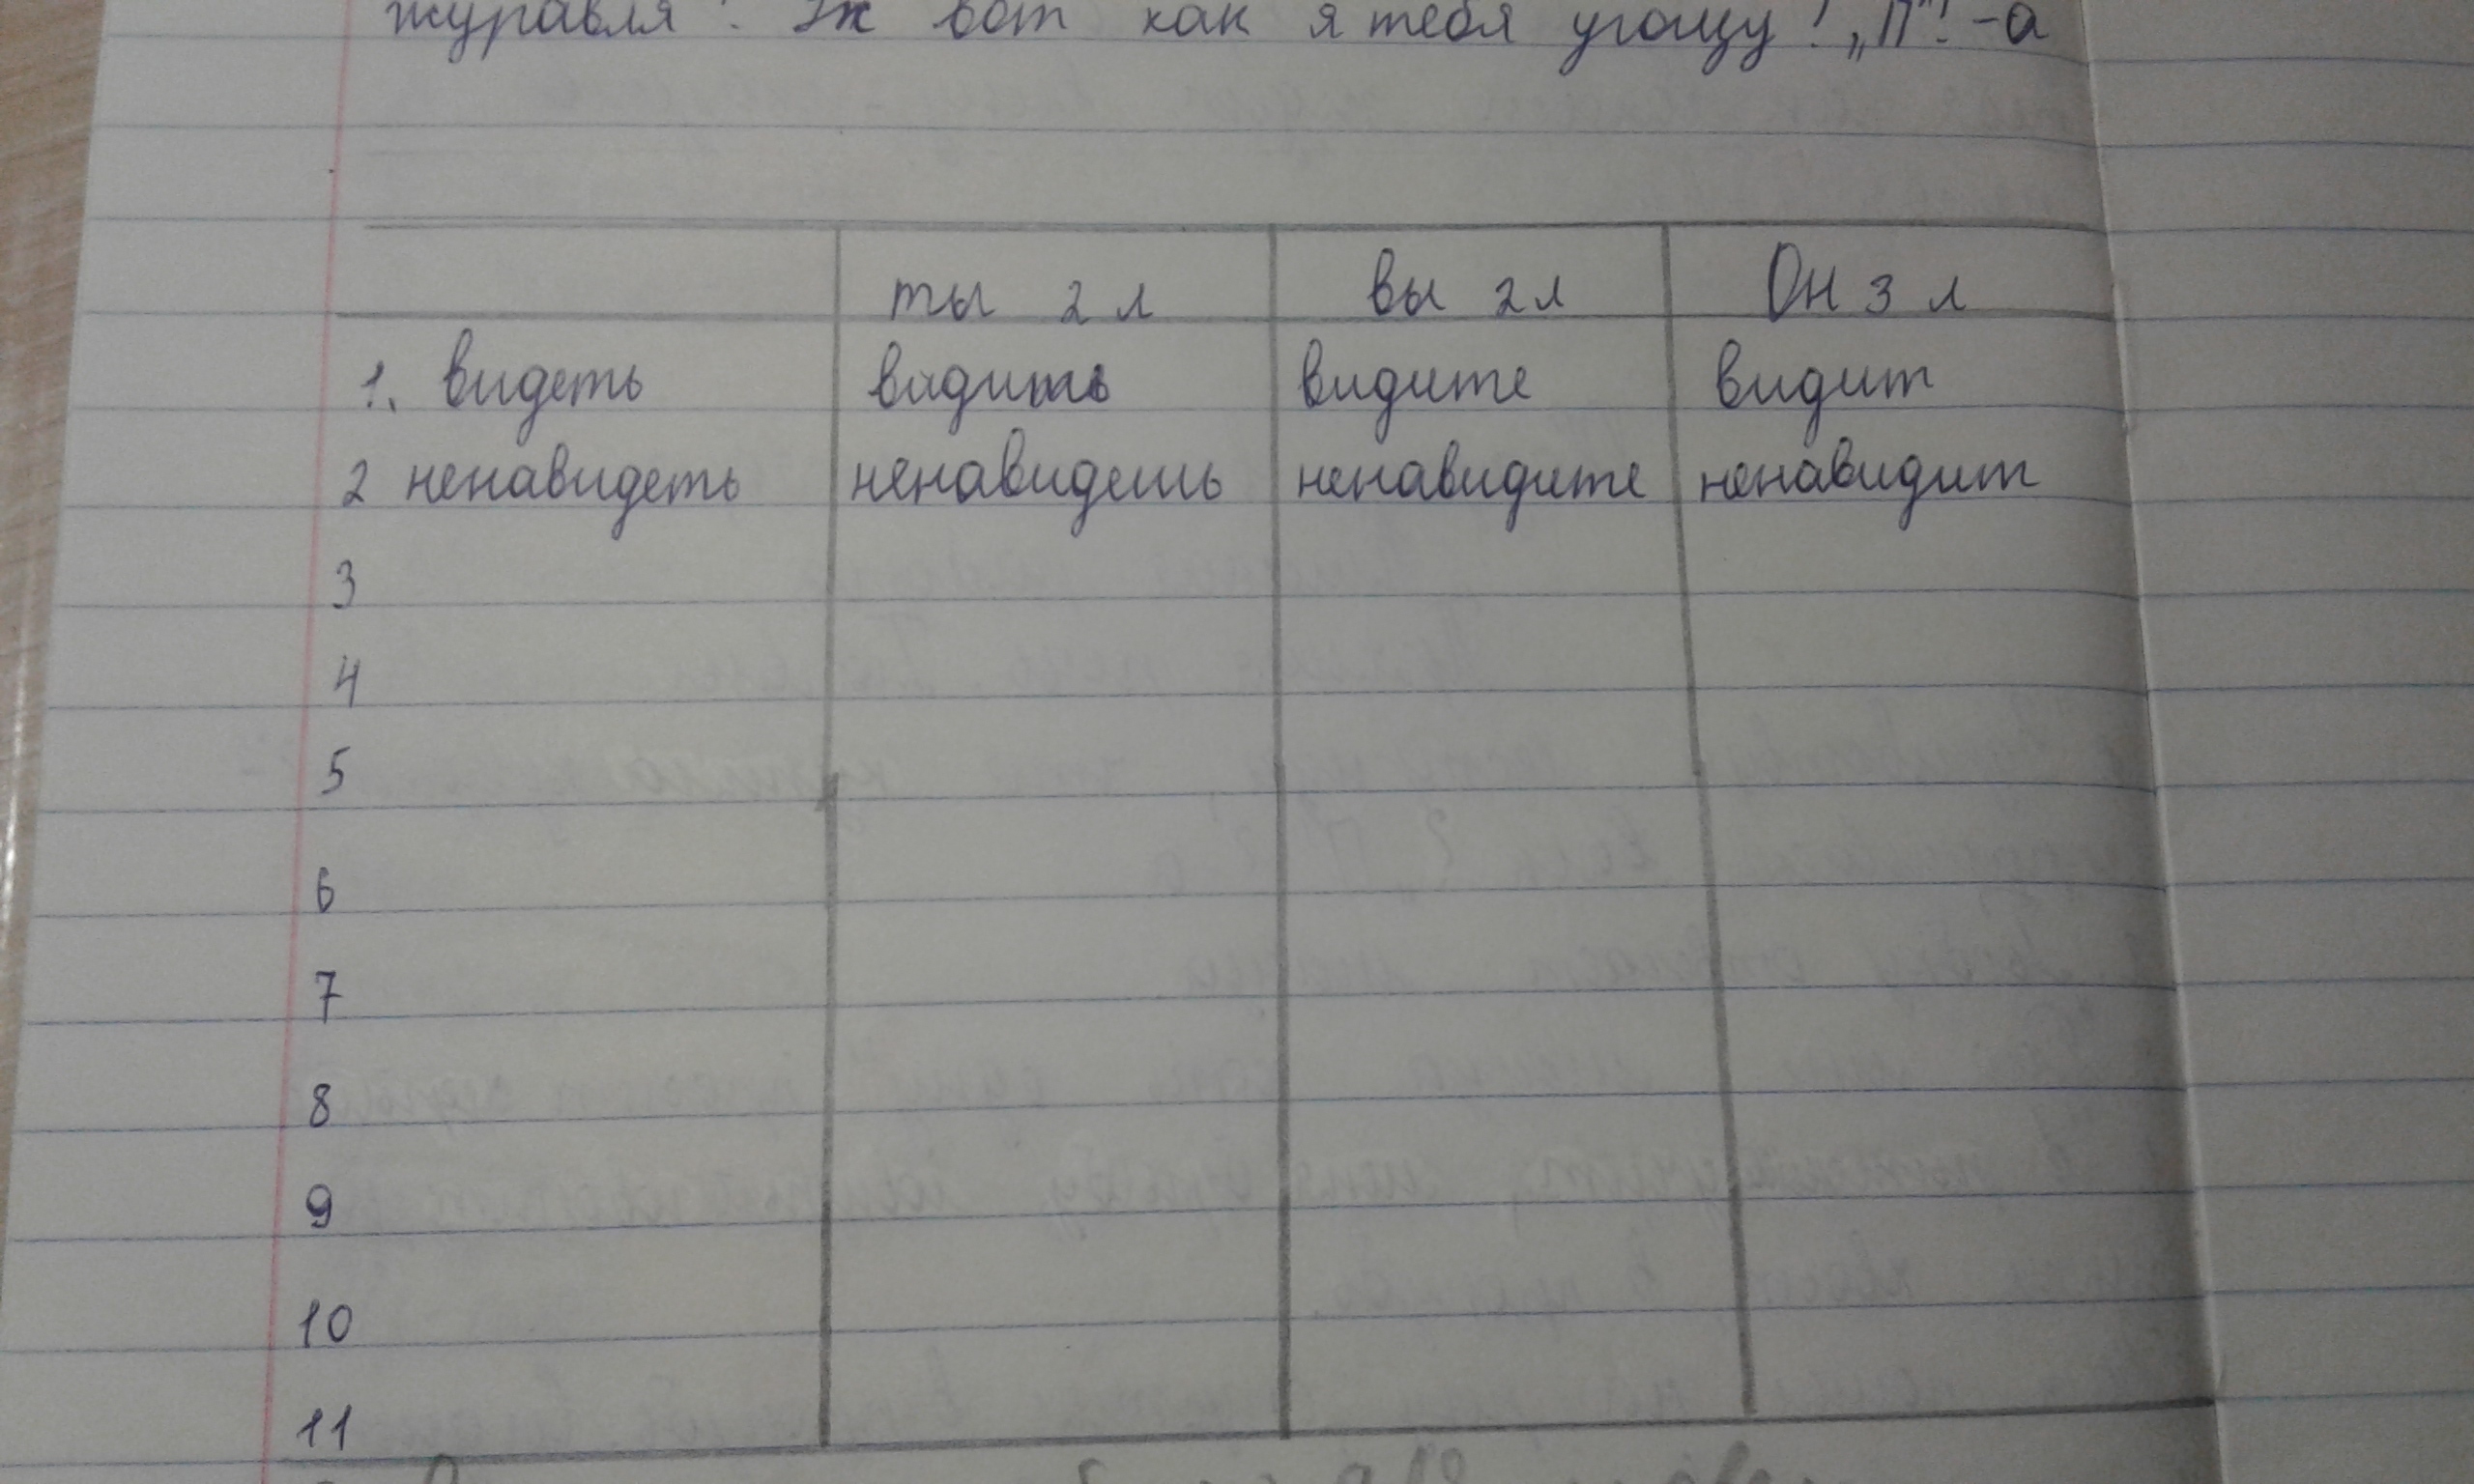 журавля! Уж вот как я тебя угощу! „П"! -а
ты 2 л вы 2 л Он 3 л
1. видеть видишь видите видит
2 ненавидеть ненавидешь ненавидите ненавидит
3
4
5
6
7
8
9
10
11